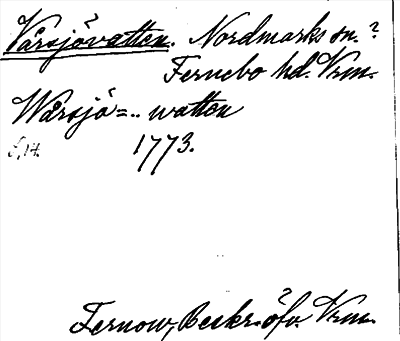 Vårsjövatten. Nordmarks sn.?
Fernebo hd. Vrm.
Wårsjö=.. watten
1773.
Fernow, Beskr. öfv. Vrm.